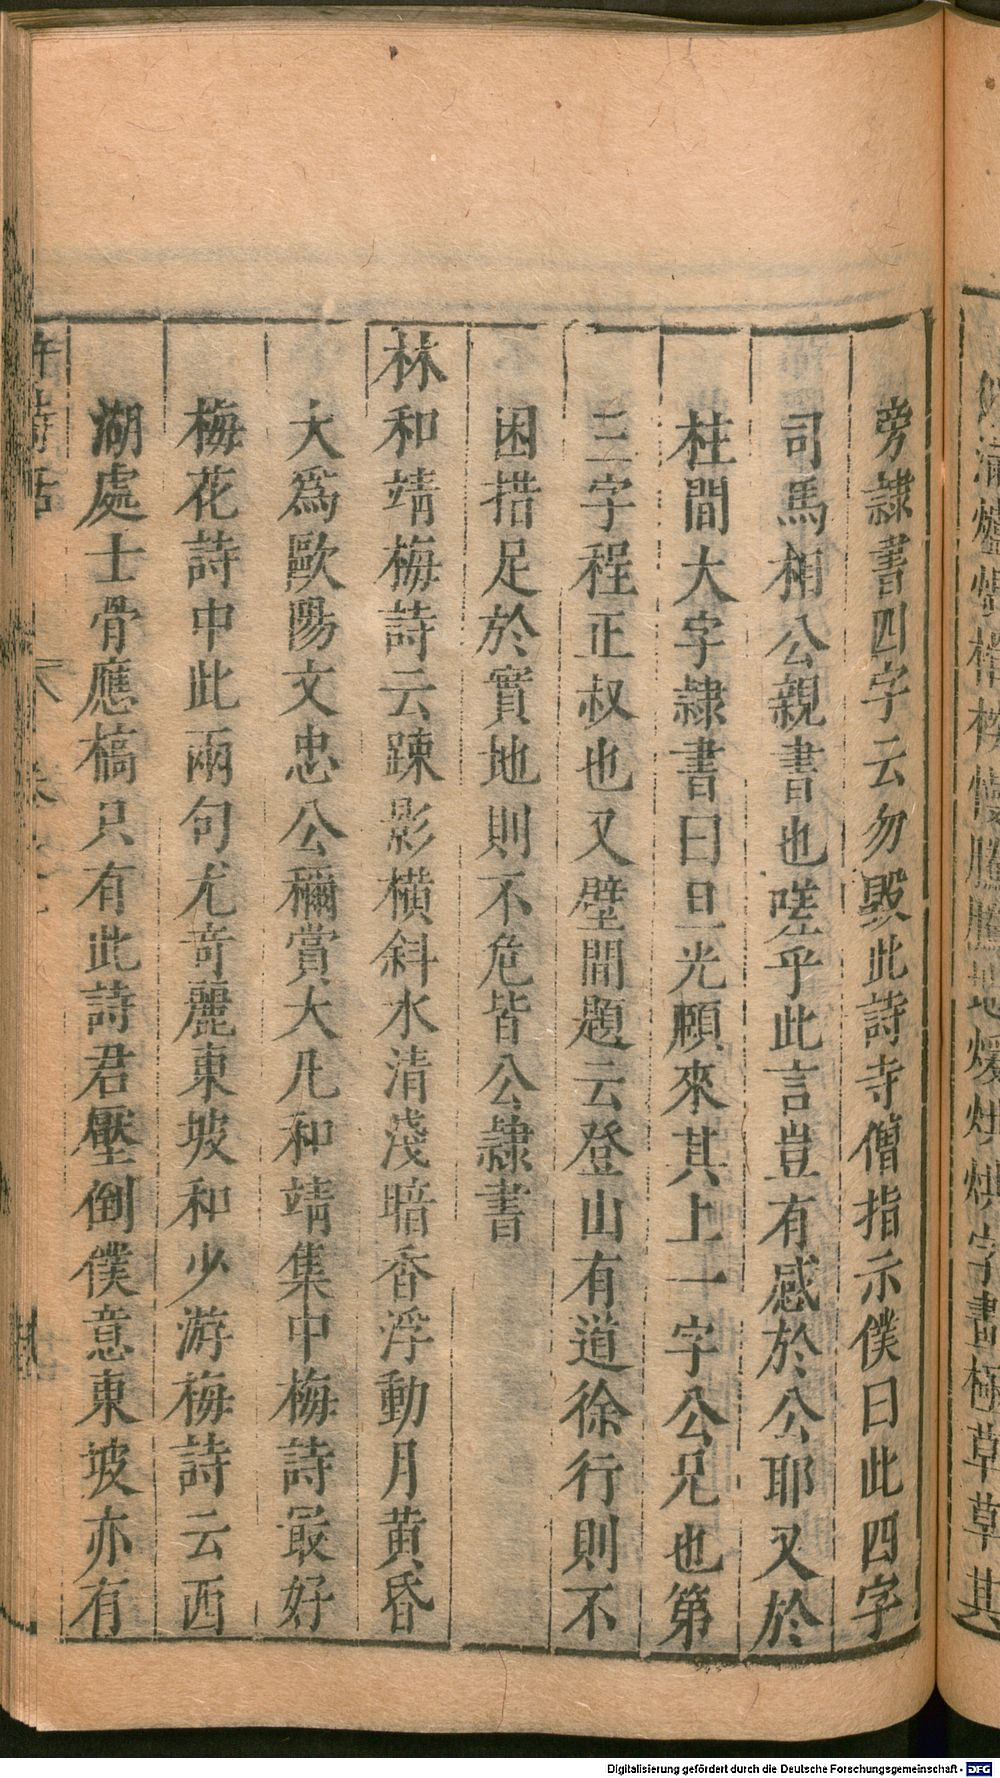 旁隷書四字云勿毀此詩寺僧指示僕曰此四字
司馬相公親書也嗟乎此言豈有感於公耶又於
柱間大字隷書曰旦光顧來其上一字公兄也第
三字程正叔也又壁間題云登山有道徐行則不
困措足於實地則不危皆公隷書
林和靖梅詩云踈影橫斜水清淺暗香浮動月黄昏
大爲歐陽文忠公稱賞大凡和靖集中梅詩最好
梅花詩中此兩句尤奇麗東坡和少游梅詩云西
湖處士骨應槁只有此詩君壓倒僕意東坡亦有
許詩話
Digitalisierung gefördert durch die Deutsche Forschungsgemeinschaft - DFG